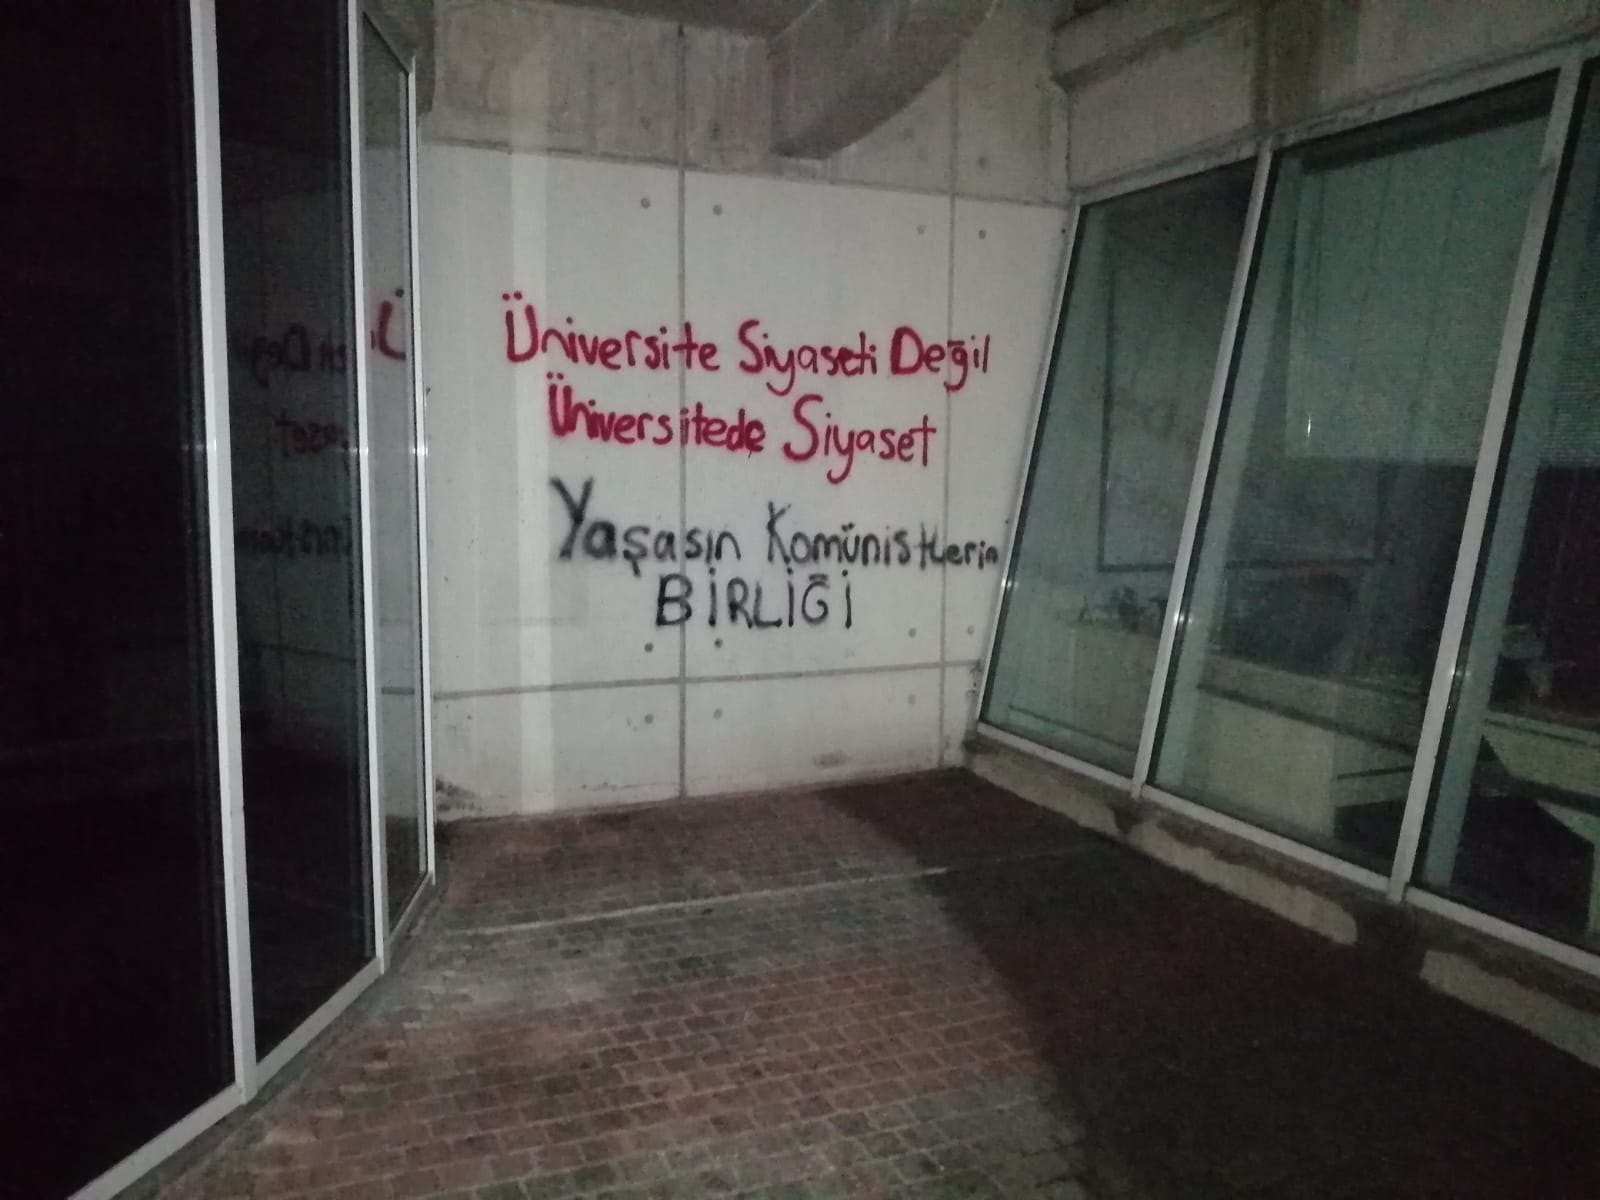 Üniversite Siyaseti Değil
Üniversitede Siyaset
Yaşasın Komünistlerin
BİRLİĞİ